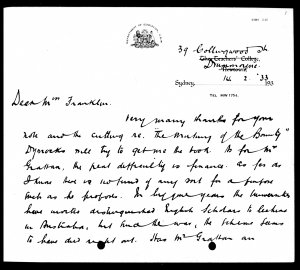 39 Collingwood St
Drummoyne
Sydney, 14 2 33
TEL. MW 1751.
Dear Miss Franklin
Very many thanks for your
note and the cutting re. The Mutiny of the Bounty"
Dymocks will try to get me the book. As for Mr
Grattan, the great difficulty is finance. As far as
I know there is no fund of any sort for a purpose
such as he proposes. In bygone years the Universities
have invited distinguished English Scholars to lecture
in Australia, but since the war, the scheme seems
to have died right out. Has Mr Grattan an